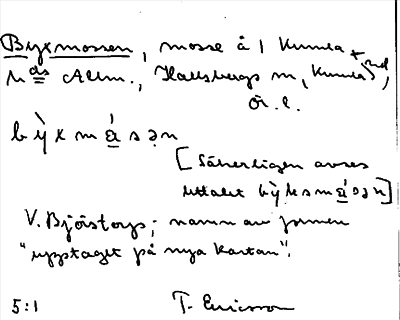 Byxmossen, mosse å 1 Kumla
och Alm., Hallsbergs m, Kumla hd,
Ör. l.
bỳx m ǻ s ə n
[Säkerligen avses
uttalet bỳksmǻsən]
V. Björstorp; namn av formen
"upptaget på nya kartan".
5:1 T. Ericsson